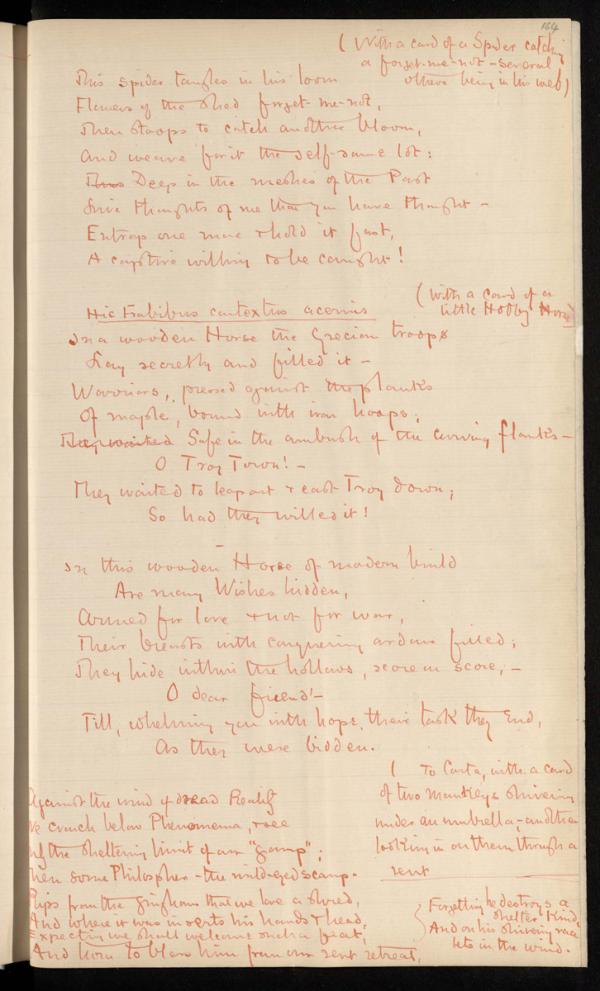 164
(With a card of a Spider catching
a forget-me-not - several
others being in his web)
This spider tangles in his loom
Flowers of the shed forget-me-not,
Then stoops to catch another bloom,
And weave for it the self-same lot:
Thus Deep in the meshes of the Past
thoughts of me that you have thought -
Entrap one more & hold it fast,
A captive willing to be caught!
(With a card of a
little Hobby Horse)
Hic trabibus contextus acernis
In a wooden Horse the Grecian troops
Lay secretly and filled it -
Warriors, pressed against the planks
Of maple, bound with iron hoops;
They waited Safe in the ambush of the curving flanks -
O Troy Town! -
They waited to leap out & cast Troy down;
So had they willed it!
In this wooden Horse of modern build
Are many Wishes hidden,
Armed for love & not for war,
Their breasts with conquering ardour filled;
They hide within the hollows, score on score, -
O dear friend! -
Till, whelming you with hope, their task they End,
As they were bidden.
( To Carta, with a card
of two Monkeys shivering
under an umbrella, - another
looking in on them through a
rent
Against the wind of dread Reality
We crouch below Phenomena, & see
the sheltering limit of our "gamp";
When some Philosopher - the wild-eyed scamp -
Rips from the gingham that we love a shred,
And where it was inserts his hands & head,
Expecting we shall welcome such a feat,
And to bless him from our rent retreat,
Forgetting he destroys a
shelter kind,
And on his shivering race
lets in the wind.